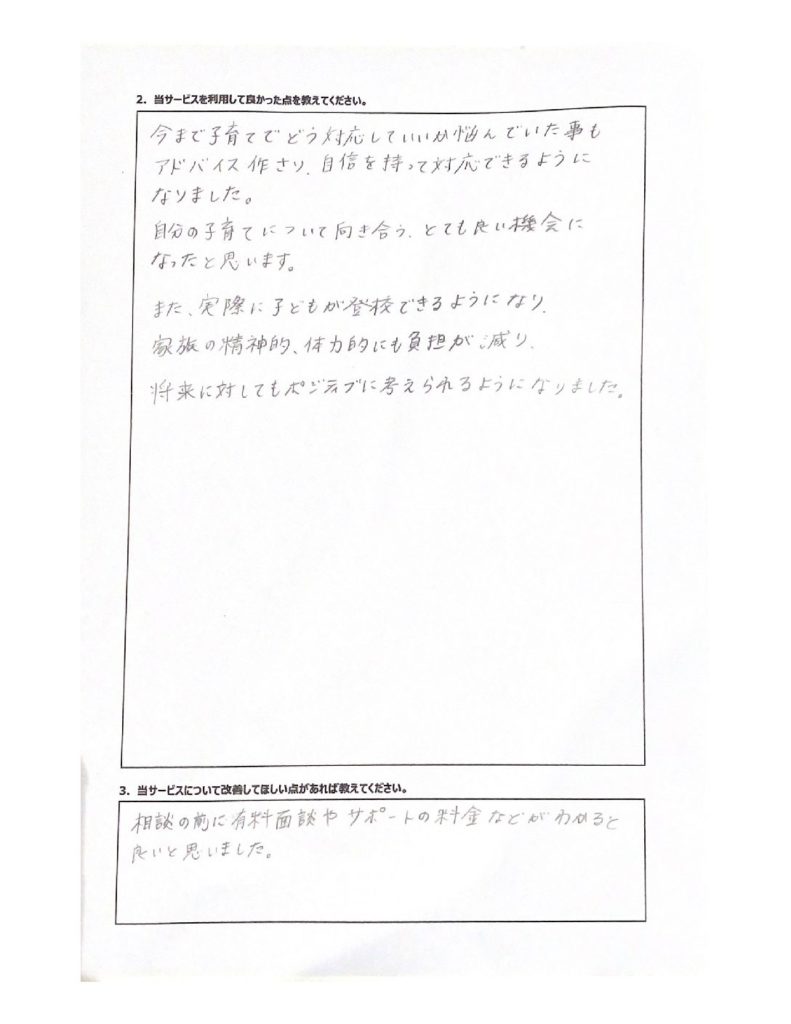 2. 当サービスを利用して良かった点を教えてください。
今まで子育てでどう対応していいか悩んでいた事も
アドバイス作さり、自信を持って対応できるように
なりました。
自分の子育てについて向き合う、とても良い機会に
なったと思います。
また、実際に子どもが登校できるようになり、
家族の精神的、体力的にも負担が減り、
将来に対してもポジティブに考えられるようになりました。
3. 当サービスについて改善してほしい点があれば教えてください。
相談の前に有料面談やサポートの料金などがわかると
良いと思いました。